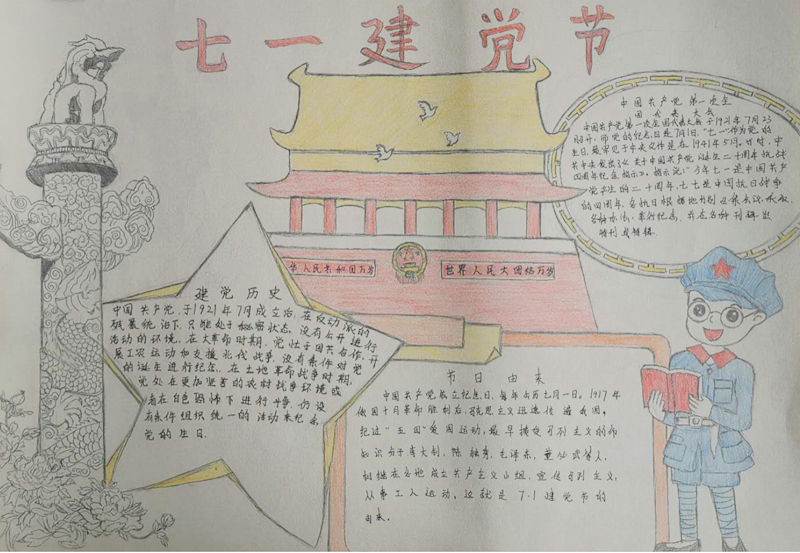 七一建党节
中国共产党第一次全
国代表大会
中国共产党第一次全国代表大会于1921年7月23
召开,而党的纪念日是7月1日."七一"作为党的
生日,最早见于中央文件是在1941年5月.时,中
共中央发出了《关于中国共产党诞生二十周年抗战
四周年纪念指示》,指示说:"今年七一是中国共产
党产生的二十周年,七七是中国抗日战争
的四周年,各抗日根据地
各种办法,举行纪念,并在各种刊物出
特刊或特辑.
华人民共和国万岁
世界人民大团结万岁
建党历史
中国共产党,于1921年7月成立后,在反动派的
残暴统治下,只能处于秘密状态,没有公开进行
活动的环境.在大革命时期,党忙于国共合作,开
展工农运动和支援北伐战争,没有条件对党
的诞生进行纪念.在土地革命战争时期,
党处在更加坚苦的农村战争环境或
者在白色恐怖下进行斗争.仍没
有条件组织统一的活动来纪念
党的生日.
节日由来
中国共产党成立纪念日,每年公历七月一日.1917年
俄国十月革命胜利后,马克思主义迅速传遍我国,
经过"五四"爱国运动,最早接受马列主义的知
识分子李大钊,陈独秀,毛泽东,董必武等人,
相继在各地成立共产主义小组,宣传马列主义,
从事工人运动,这就是7.1建党节的
由来.